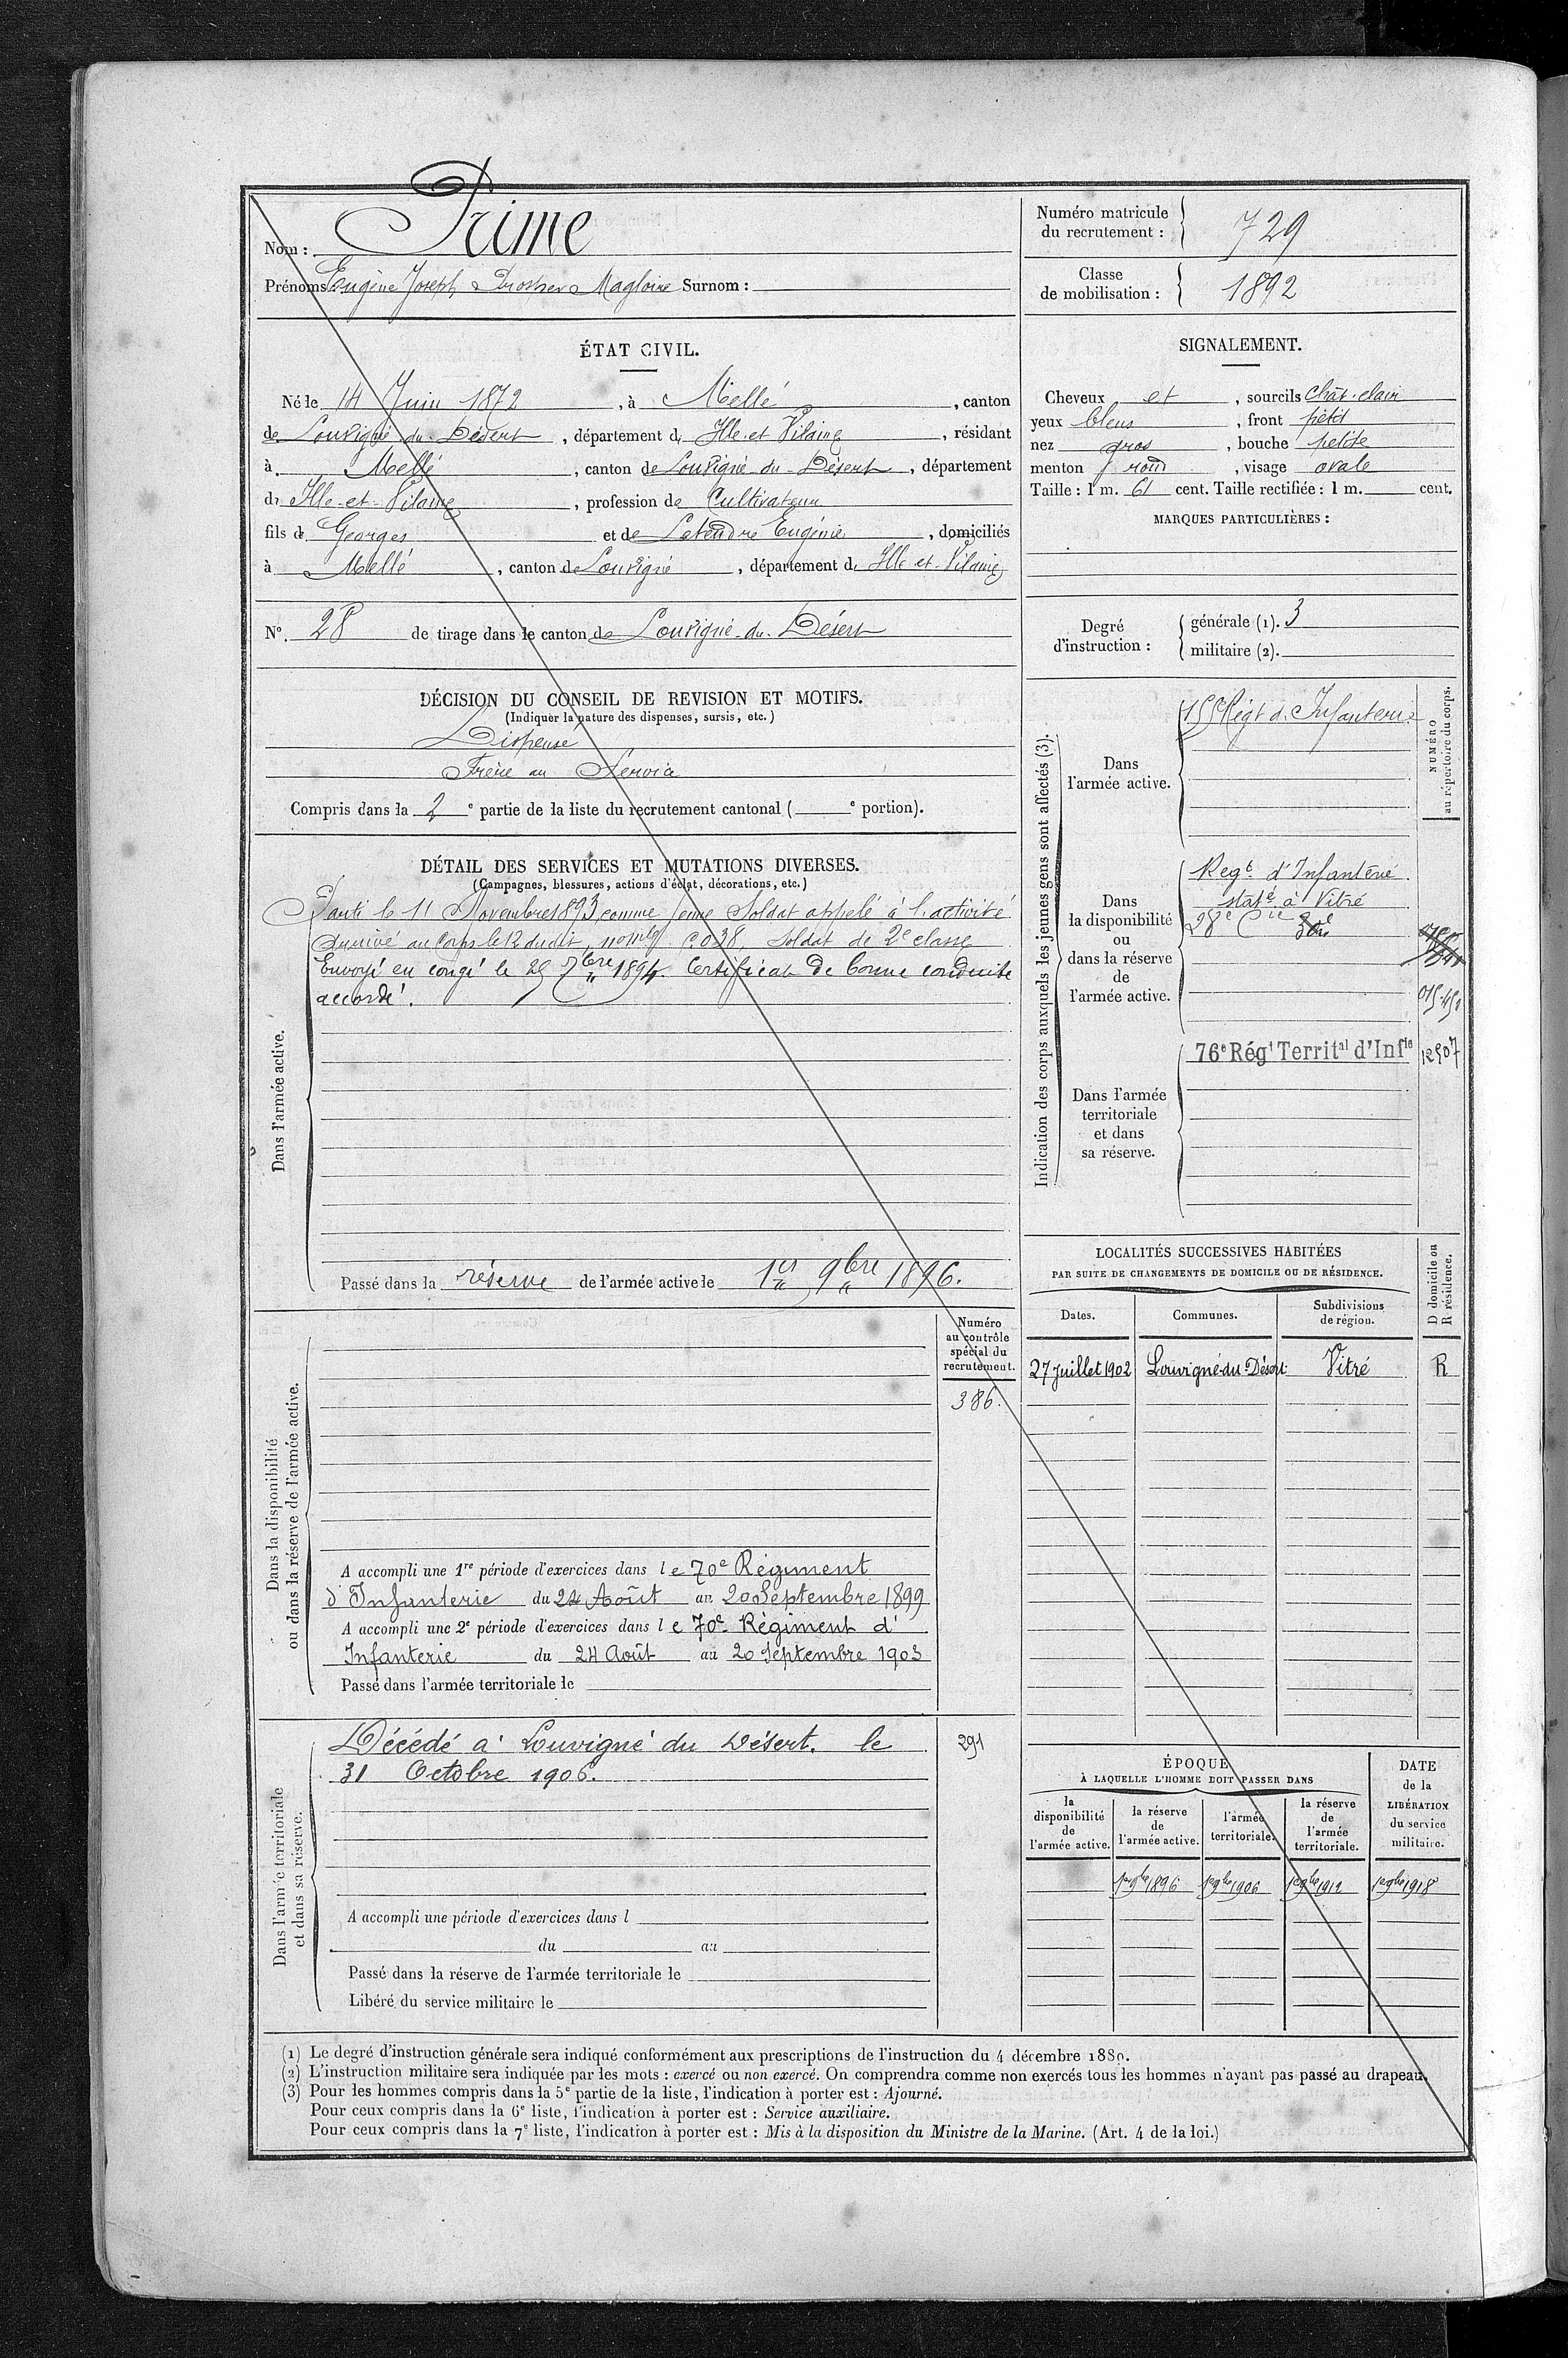 Nom : Prime
Prénoms : Eugène Joseph Magloire Surnom :
Numéro matricule du recrutement : 729
Classe de mobilisation : 1892
ÉTAT CIVIL.
Né le 14 Juin 1872, à Mellé, canton
de Louvigné-du-Désert, département d Ille-et-Vilaine, résidant
à Mellé, canton de Louvigné-du-Désert, département
d Ille-et-Vilaine, profession de Cultivateur
fils de Georges et de Letendre Eugénie, domiciliés
à Mellé, canton de Louvigné, département d Ille-et-Vilaine
N°. 28 de tirage dans le canton de Louvigné-du-Désert
SIGNALEMENT.
Cheveux et, sourcils chât-clair
yeux bleus, front petit
nez gros, bouche petite
menton rond, visage ovale
Taille : 1 m. 61 cent. Taille rectifiée : 1 m. cent.
MARQUES PARTICULIÈRES :
Degré d'instruction :
générale (1). 3
militaire (2).
DÉCISION DU CONSEIL DE REVISION ET MOTIFS.
(Indiquer la nature des dispenses, sursis, etc.)
Dispensé
Frère au Service
Compris dans la 2e partie de la liste du recrutement cantonal ( e portion).
DÉTAIL DES SERVICES ET MUTATIONS DIVERSES.
(Campagnes, blessures, actions d'éclat, décorations, etc.)
Dans l'armée active.
Parti le 11 Novembre 1893 comme jeune Soldat appelé à l'activité.
Arrivé au Corps le 12 dudit, Soldat de 2e classe
Envoyé en congé le 25 7bre 1894. Certificat de bonne conduite
accordé.
Passé dans la réserve de l'armée active le 1er 9bre 1896.
Indication des corps auxquels les jeunes gens sont affectés (3).
NUMÉRO au répertoire du corps.
Dans l'armée active.
Régt d'Infanterie
Dans la disponibilité ou dans la réserve de l'armée active.
Regt. d'Infanterie
staté à Vitré
28e Cie
Dans l'armée territoriale et dans sa réserve.
76e Régt Territal d'Infie
12507
LOCALITÉS SUCCESSIVES HABITÉES
PAR SUITE DE CHANGEMENTS DE DOMICILE OU DE RÉSIDENCE.
D domicile ou R résidence.
Dates. Communes. Subdivisions de région.
27 Juillet 1902 Louvigné-du-Désert Vitré R
Dans la disponibilité ou dans la réserve de l'armée active.
Numéro au contrôle spécial du recrutement.
386.
A accompli une 1re période d'exercices dans le 70e Régiment
d'Infanterie du 24 Août au 20 Septembre 1899
A accompli une 2e période d'exercices dans le 70e Régiment d'
Infanterie du 24 Août au 20 Septembre 1903
Passé dans l'armée territoriale le
Dans l'armée territoriale et dans sa réserve.
Décédé à Louvigné du Désert. le 291
31 Octobre 1906.
A accompli une période d'exercices dans l
du au
Passé dans la réserve de l'armée territoriale le
Libéré du service militaire le
ÉPOQUE
À LAQUELLE L'HOMME DOIT PASSER DANS
la disponibilité de l'armée active.
la réserve de l'armée active.
l'armée territoriale.
la réserve de l'armée territoriale.
DATE de la LIBÉRATION du service militaire.
1er 9bre 1896 1er 9bre 1906 1er 9bre 1912 1er 9bre 1918
(1) Le degré d'instruction générale sera indiqué conformément aux prescriptions de l'instruction du 4 décembre 1889.
(2) L'instruction militaire sera indiquée par les mots : exercé ou non exercé. On comprendra comme non exercés tous les hommes n'ayant pas passé au drapeau.
(3) Pour les hommes compris dans la 5e partie de la liste, l'indication à porter est : Ajourné.
Pour ceux compris dans la 6e liste, l'indication à porter est : Service auxiliaire.
Pour ceux compris dans la 7e liste, l'indication à porter est : Mis à la disposition du Ministre de la Marine. (Art. 4 de la loi.)